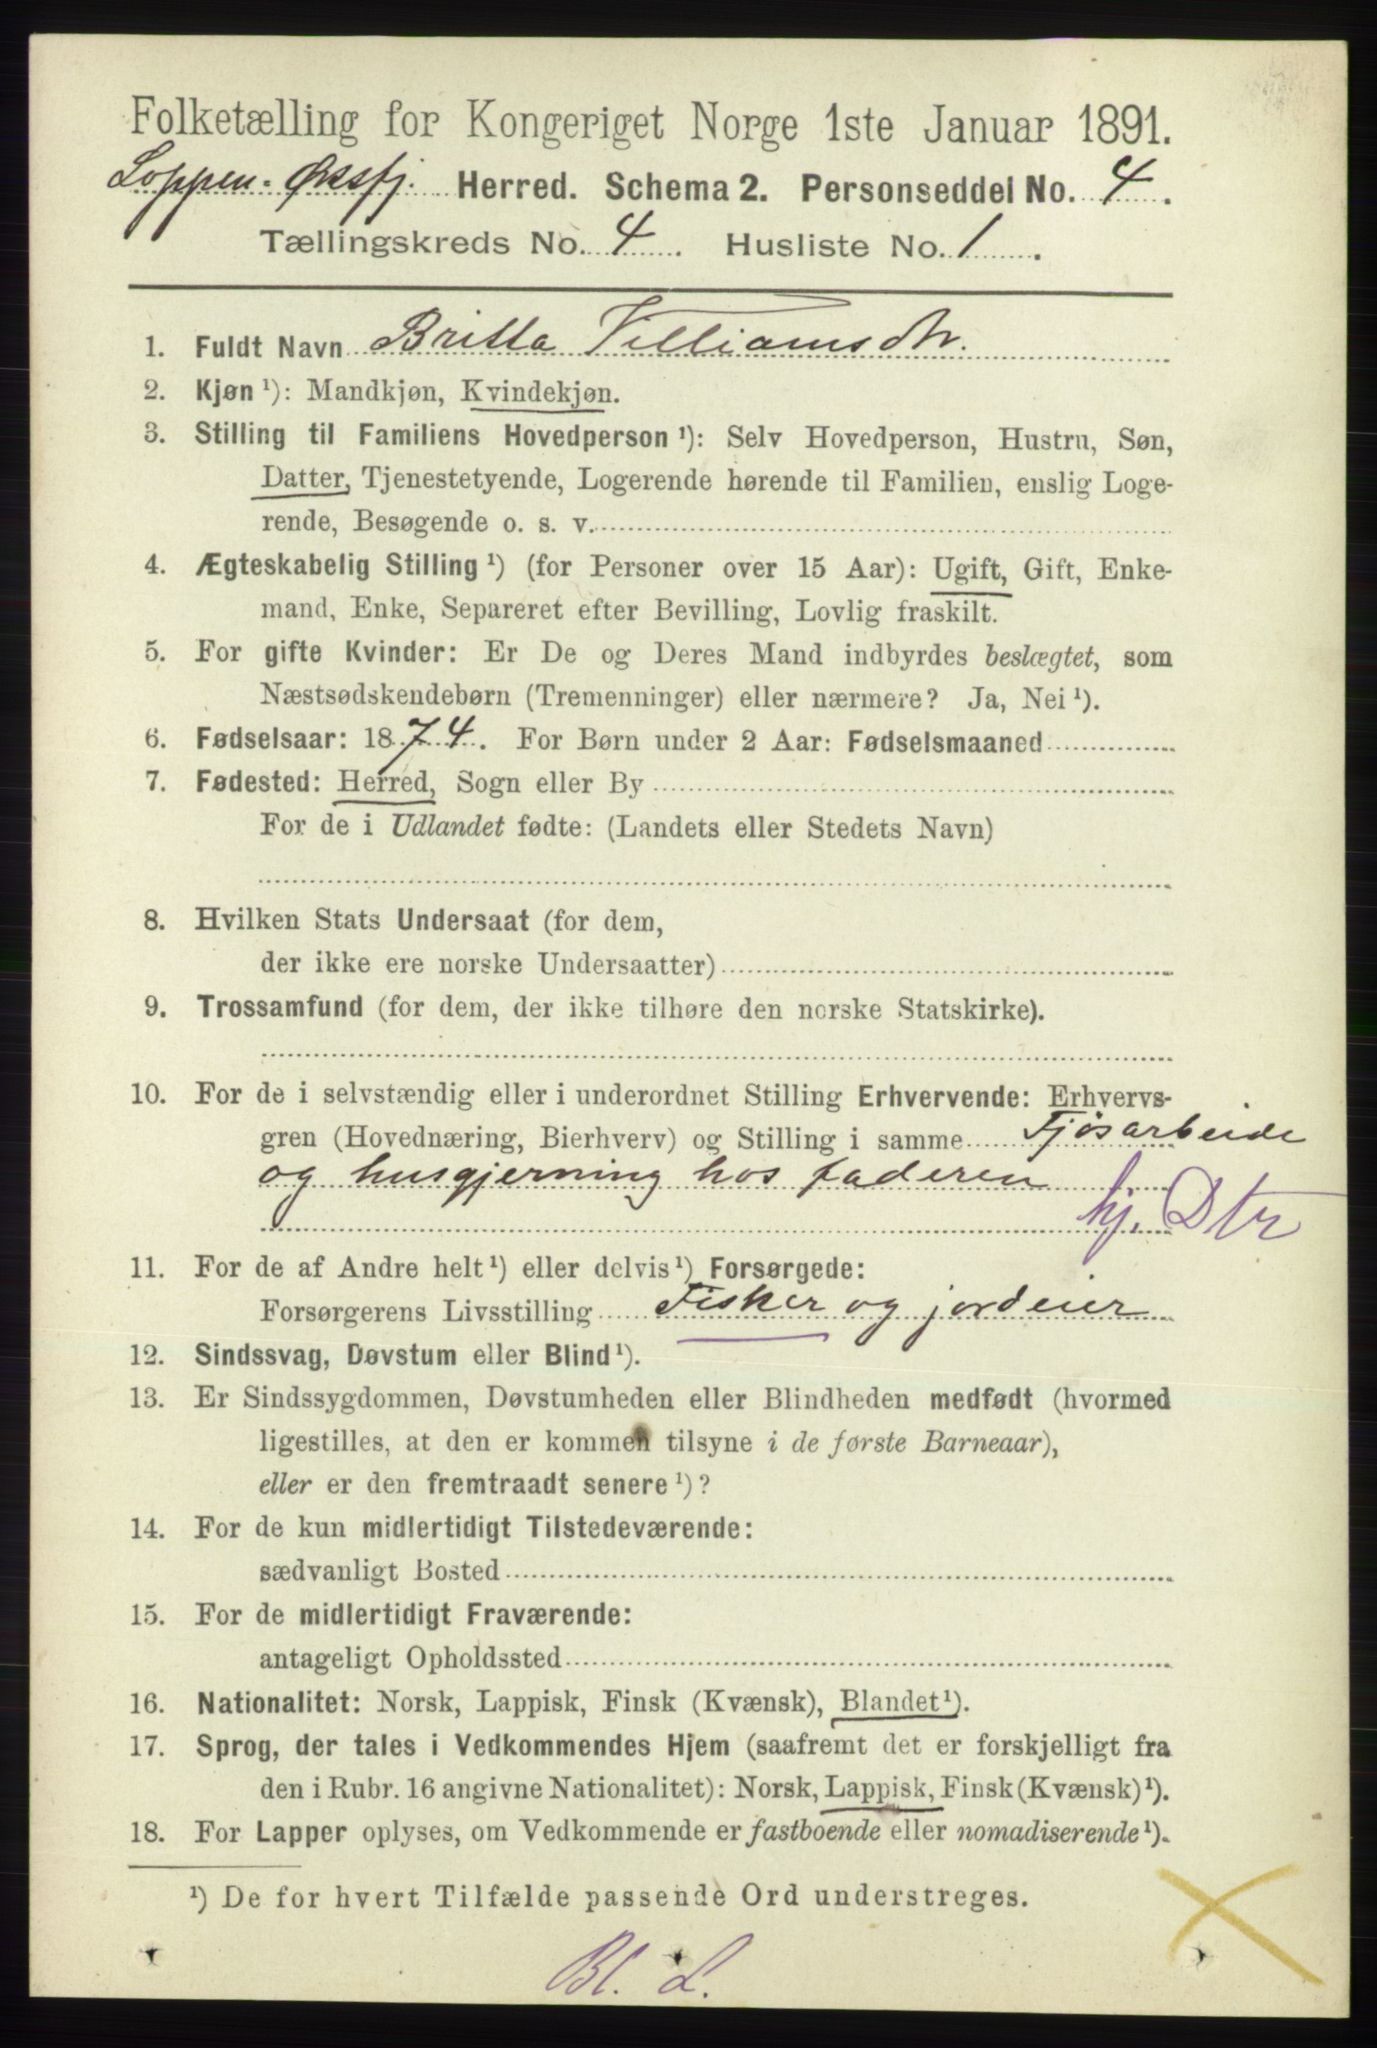 Folketælling for Kongeriget Norge 1ste Januar 1891.
Loppen. Øksfj. Herred. Schema 2. Personseddel No. 4.
Tællingskreds No. 4. Husliste No. 1.
1. Fuldt Navn Britta Villiamsdtr.
2. Kjøn ¹): Mandkjøn, Kvindekjøn.
3. Stilling til Familiens Hovedperson ¹): Selv Hovedperson, Hustru, Søn,
Datter, Tjenestetyende, Logerende hørende til Familien, enslig Loge-
rende, Besøgende o. s. v.
4. Ægteskabelig Stilling ¹) (for Personer over 15 Aar): Ugift, Gift, Enke-
mand, Enke, Separeret efter Bevilling, Lovlig fraskilt.
5. For gifte Kvinder: Er De og Deres Mand indbyrdes beslægtet, som
Næstsødskendebørn (Tremenninger) eller nærmere? Ja, Nei ¹).
6. Fødselsaar: 1874. For Børn under 2 Aar: Fødselsmaaned
7. Fødested: Herred, Sogn eller By
For de i Udlandet fødte: (Landets eller Stedets Navn)
8. Hvilken Stats Undersaat (for dem,
der ikke ere norske Undersaatter)
9. Trossamfund (for dem, der ikke tilhøre den norske Statskirke).
10. For de i selvstændig eller i underordnet Stilling Erhvervende: Erhvervs-
gren (Hovednæring, Bierhverv) og Stilling i samme Fjøsarbeide
og husgjerning hos faderen
hj. Dtr
11. For de af Andre helt ¹) eller delvis ¹) Forsørgede:
Forsørgerens Livsstilling Fisker og jordeier
12. Sindssvag, Døvstum eller Blind ¹).
13. Er Sindssygdommen, Døvstumheden eller Blindheden medfødt (hvormed
ligestilles, at den er kommen tilsyne i de første Barneaar),
eller er den fremtraadt senere ¹)?
14. For de kun midlertidigt Tilstedeværende:
sædvanligt Bosted
15. For de midlertidigt Fraværende:
antageligt Opholdssted
16. Nationalitet: Norsk, Lappisk, Finsk (Kvænsk), Blandet ¹).
17. Sprog, der tales i Vedkommendes Hjem (saafremt det er forskjelligt fra
den i Rubr. 16 angivne Nationalitet): Norsk, Lappisk, Finsk (Kvænsk) ¹).
18. For Lapper oplyses, om Vedkommende er fastboende eller nomadiserende ¹).
¹) De for hvert Tilfælde passende Ord understreges.
Bl. L.